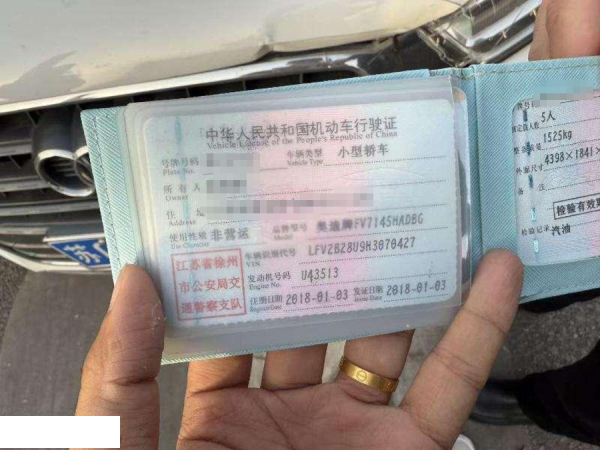 中华人民共和国机动车行驶证
Vehicle License of the People's Republic of China
号牌号码
Plate No.
车辆类型 小型轿车
Vehicle Type
所有人
Owner
住
Address
使用性质 非营运
Use Character
品牌型号 奥迪牌FV7145HADBG
Model
车辆识别代号 LFV2B28U9H3070427
VIN
发动机号码 U43513
Engine No.
注册日期 2018-01-03
Register Date
发证日期 2018-01-03
Issue Date
江苏省徐州
市公安局交
通警察支队
5人
1525kg
外廓尺寸 4398×1841×
检验有效期
检验记录 汽油
苏